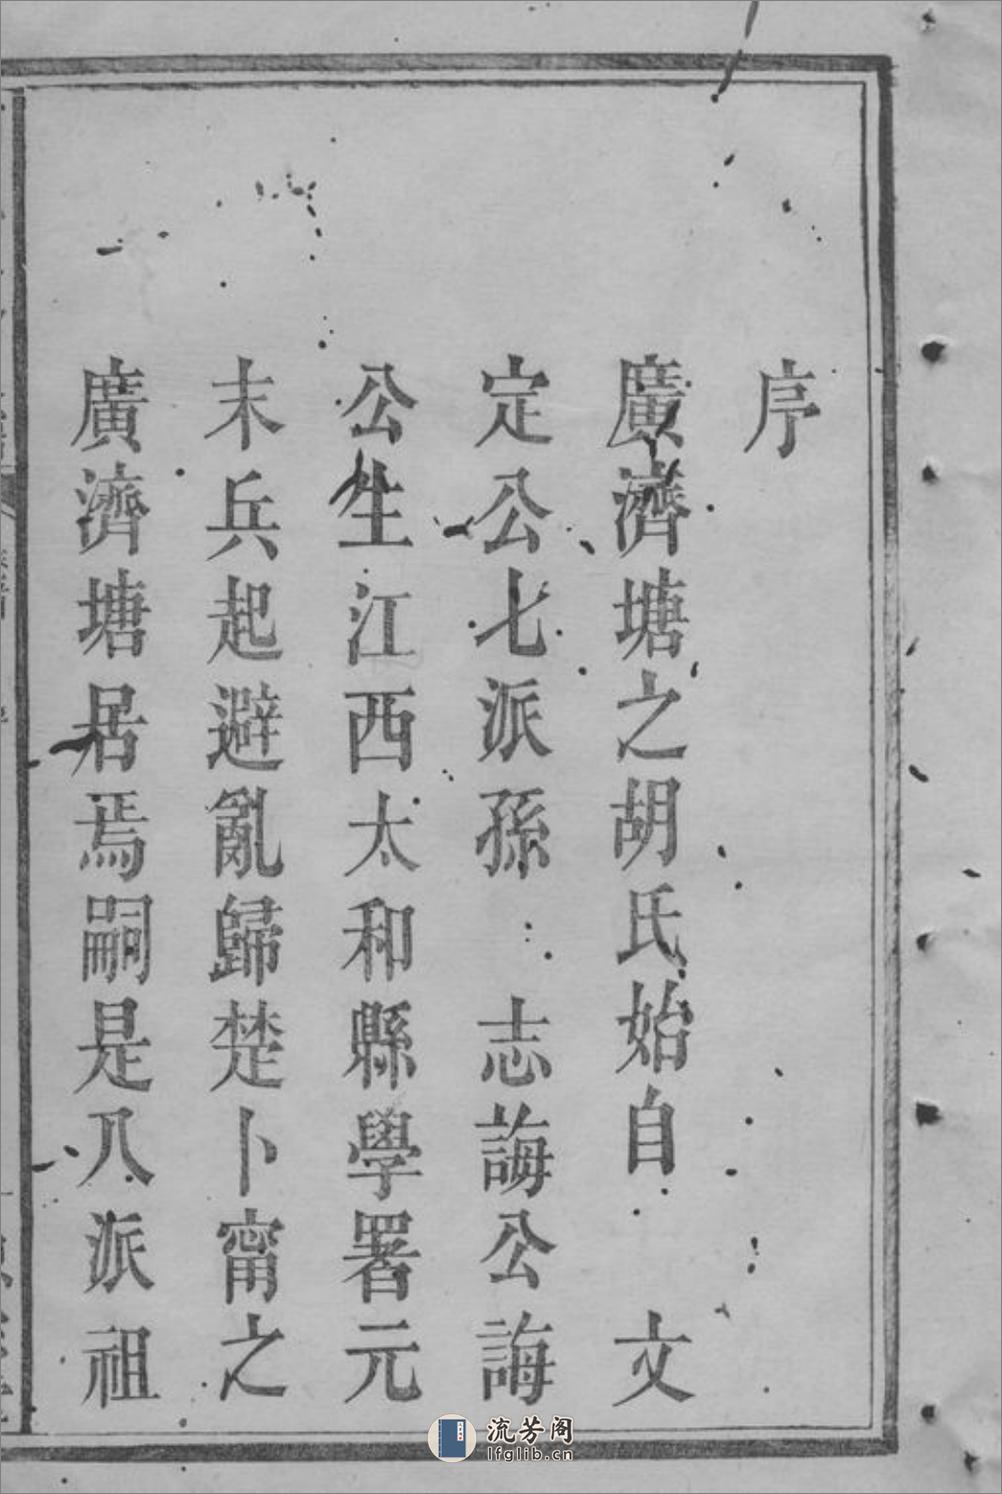 序
廣濟塘之胡氏始自　文
定公七派孫　志誨公誨
公生江西太和縣學署元
末兵起避亂歸楚卜甯之
廣濟塘居焉嗣是八派祖
流芳阁
lfglib.cn